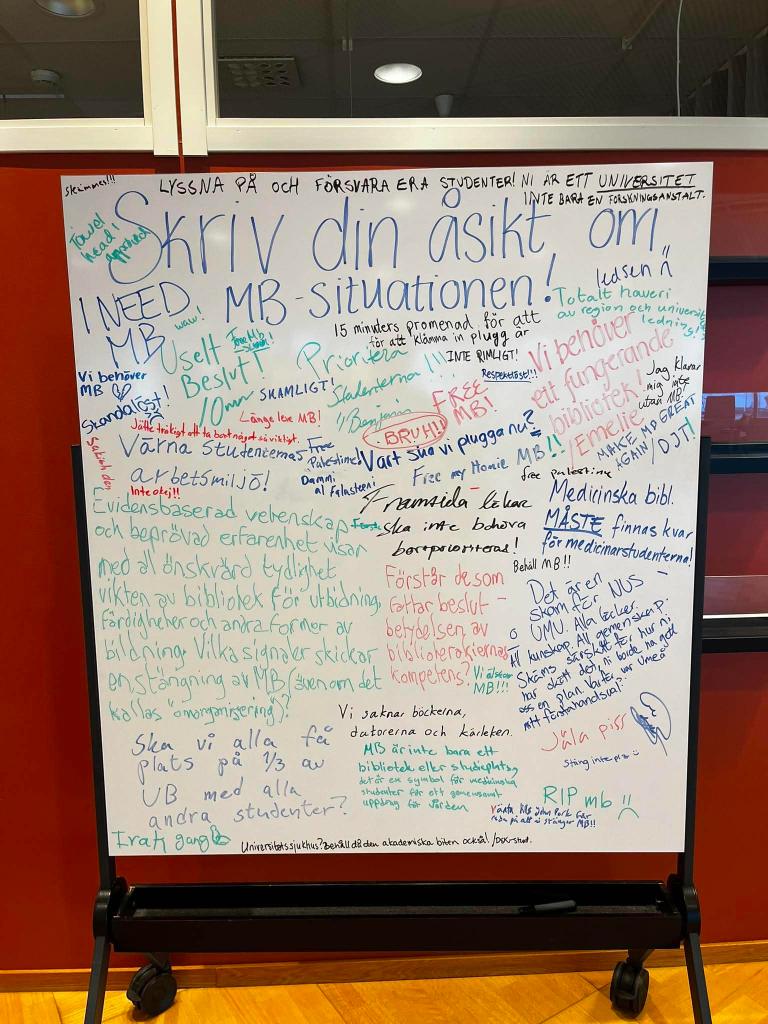 skrämmes!!!
LYSSNA PÅ OCH FÖRSVARA ERA STUDENTER! NI ÄR ETT UNIVERSITET
INTE BARA EN FORSKNINGSANSTALT.
Towel
head!
approved
Skriv din åsikt om
MB-situationen!
ledsen :(
I NEED
MB
waw!
Totalt haveri
av region och universitets
ledning!
15 minuters promenad för att
för att klämma in plugg är
INTE RIMLIGT!
Uselt
Beslut!
Free MB
Prioritera
studenterna!!!
Vi behöver
ett fungerande
bibliotek!
/Emelie
Respektlöst!!!
Jag klarar
mig inte
utan MB!
Vi behöver
MB
Skandalöst!
SKAMLIGT!
Länge leve MB!
"Benjamin
BRUH!!
FREE
MB!
MAKE MB GREAT
AGAIN / DJT!
Jätte tråkigt att ta bort något så viktigt.
Värna studenternas
arbetsmiljö!
Inte okej!!
Free
Palestine!
Dammi
al Falasteeni
Vart ska vi plugga nu?
Free my Homie MB!!
free palestine
Framtida läkar
ska inte behöva
bortprioriteras!
Medicinska bibl.
MÅSTE finnas kvar
för medicinarstudenterna!
Behåll MB!!
Evidensbaserad vetenskap
och beprövad erfarenhet visar
med all önskvärd tydlighet
vikten av bibliotek för utbidning,
färdigheter och andra former av
bildning. Vilka signaler skickar
en stängning av MB (även om det
kallas "omorganisering")?
Förstår de som
fattar beslut
betydelsen av
bibliotekariernas
kompetens?
Vi älskar
MB!!!
Det är en
skam för NUS –
o UMU. Alla läcker.
All kunskap. All gemenskap.
Skäms särskilt för hur ni
har skött det, ni borde ha gett
oss en plan. Varför var Umeå
mitt förstahandsval?
Vi saknar böckerna,
datorerna och kärleken.
Ska vi alla få
plats på 1/3 av
UB med alla
andra studenter?
MB är inte bara ett
bibliotek eller studieplats,
det är en symbol för medicinska
studenter för ett gemensamt
uppdrag för vården
Jäla piss
Stäng inte pls :)
RIP mb :(
Vänta tills John Park får
reda på att ni stänger MB!!
Irati gang
Universitetssjukhus? Behåll då den akademiska biten också! /DSK-stud.